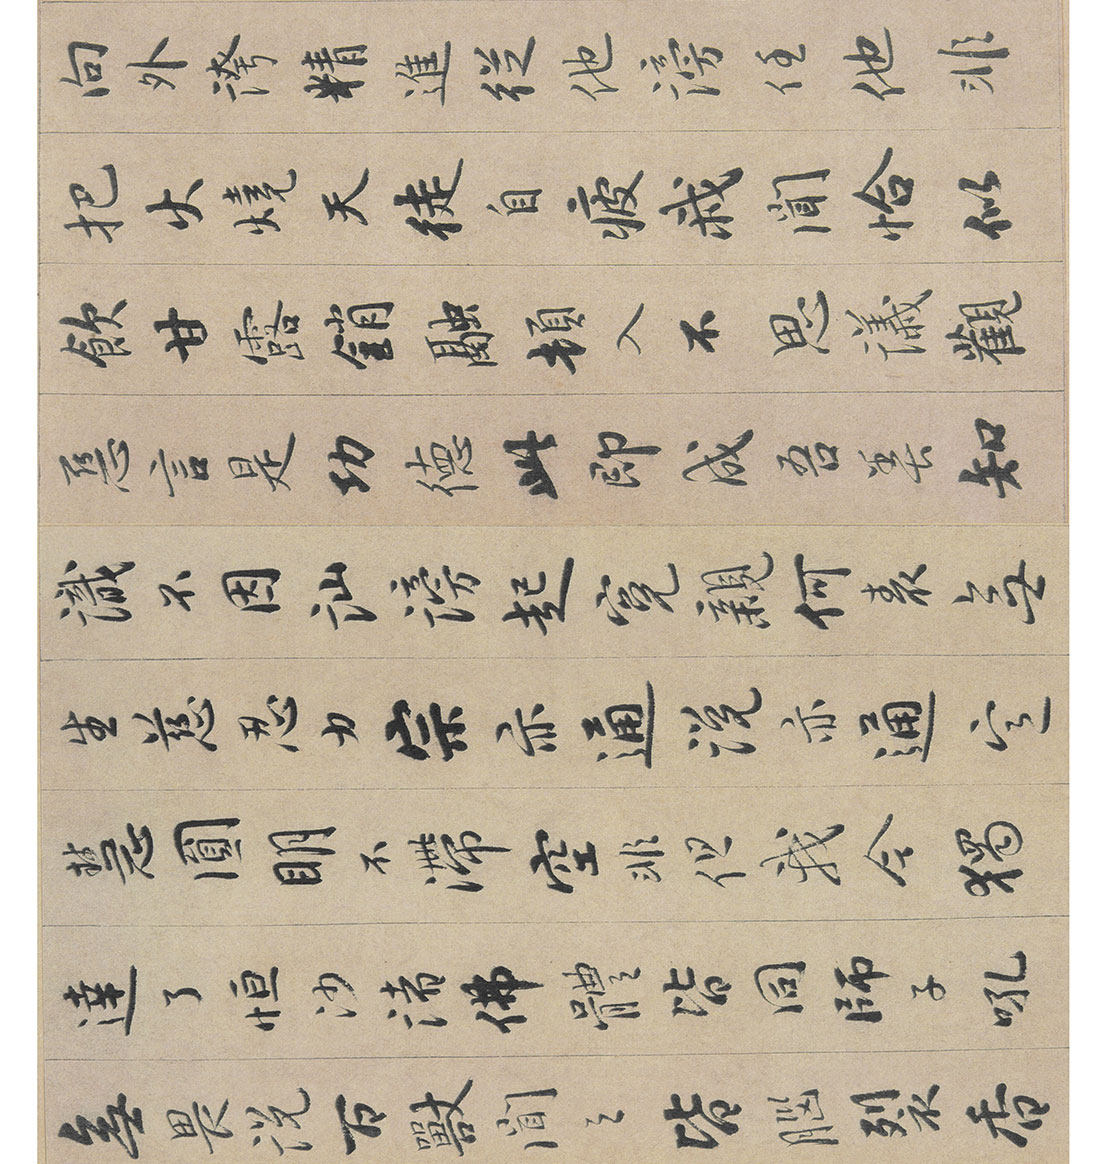 向外誇精進從他謗任他非
把火燒天徒自疲我聞恰似
飲甘露銷融頓入不思議觀
惡言是功德此即成吾善知
識不因訕謗起冤親何表無
生慈忍力宗亦通說亦通定
慧圓明不滯空非但我今獨
達了恒沙諸佛體皆同師子吼
無畏說百獸聞之皆腦裂香